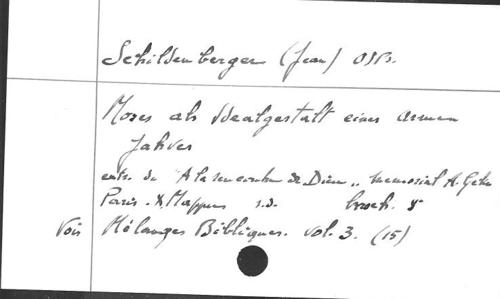 Schildenberger (Jean) OSB.
Moses als Idealgestalt eines Armen
Jahves
extr. de "A la rencontre de Dieu" memorial A. Gelin
Paris. X. Mappus s.d. broch. 8°
Voir Mélanges Bibliques. vol. 3. (15)